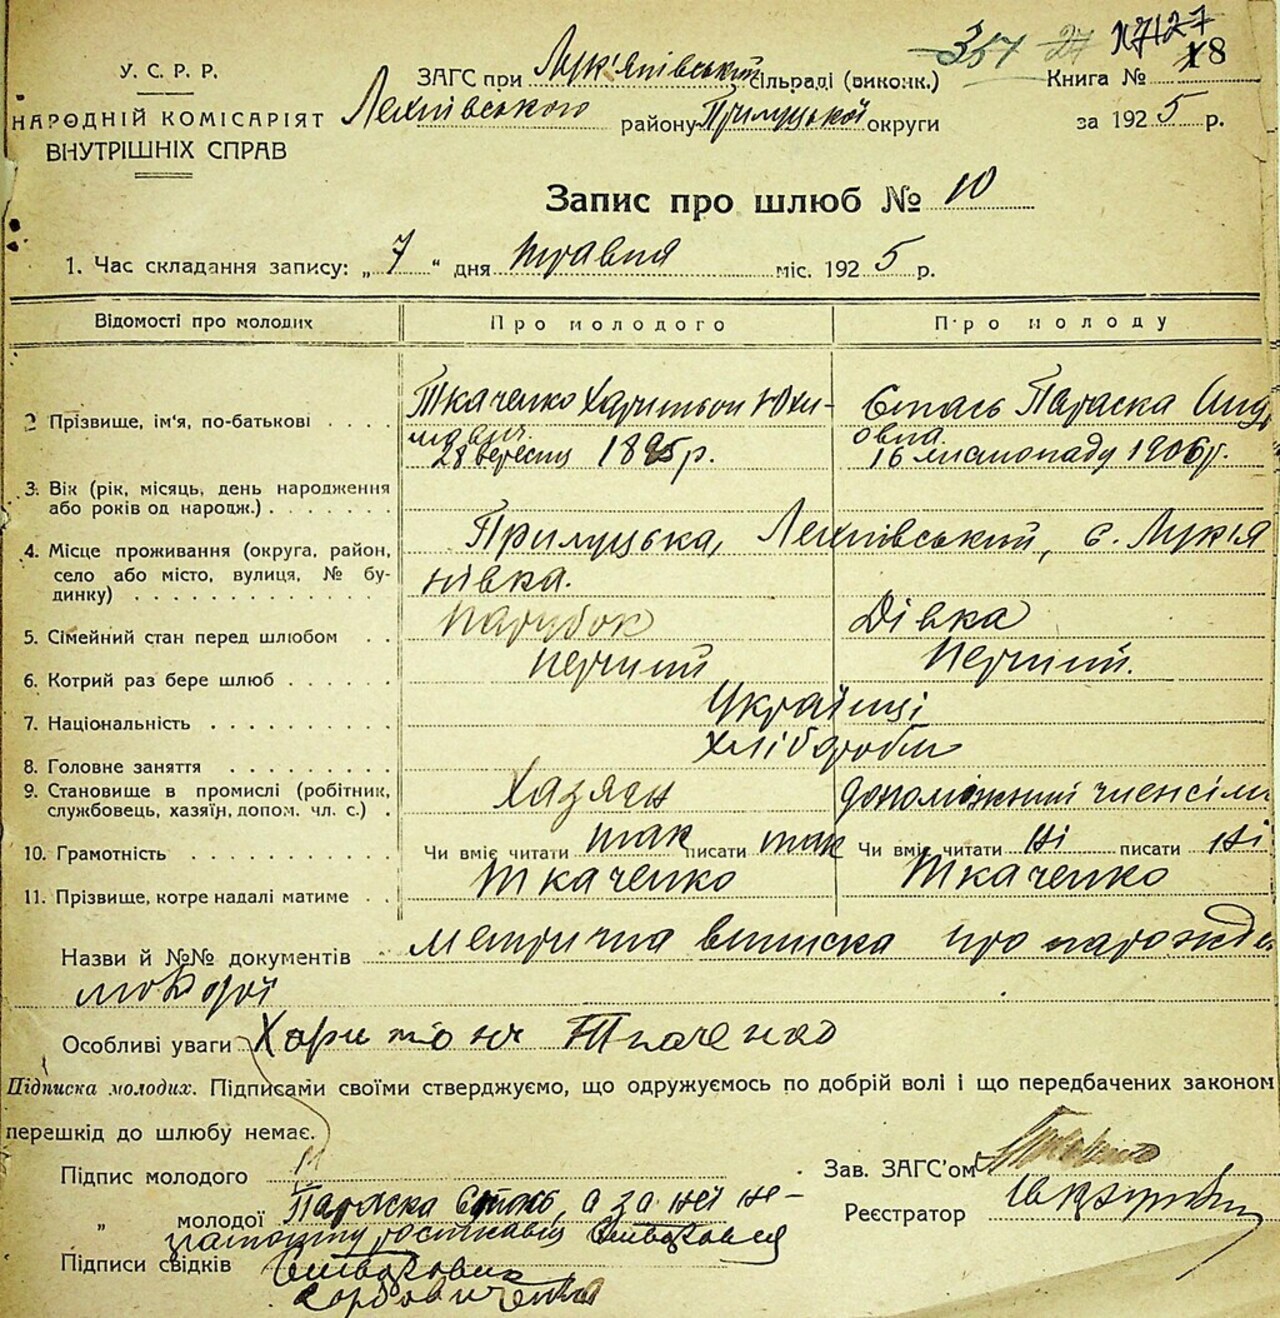 357 27 N7127
У. С. Р. Р.
НАРОДНІЙ КОМІСАРІЯТ
ВНУТРІШНІХ СПРАВ
ЗАГС при Лук'янівський сільраді (виконк.)
Лехнівського району Прилуцької округи
Книга № 18
за 1925 р.
Запис про шлюб № 10
1. Час складання запису: „7“ дня травня міс. 1925 р.
Відомості про молодих Про молодого Про молоду
2 Прізвище, ім'я, по-батькові . . . . Ткаченко Харитон Юхи- Єпась Параска Анд
мович овна
28 вересня 1895 р. 16 листопаду 1906 р.
3. Вік (рік, місяць, день народження
або років од народж.) . . . . . . .
4. Місце проживання (округа, район, Прилуцька, Лехнівський, с. Лукія
село або місто, вулиця, № бу- нівка.
динку) . . . . . . . . . . . . . .
5. Сімейний стан перед шлюбом . . Парубок Дівка
6. Котрий раз бере шлюб . . . . . . Перший Перший.
7. Національність . . . . . . . . . . Українці
8. Головне заняття . . . . . . . . . Хлібороби
9. Становище в промислі (робітник, Хазяєн допоміжний член сім
службовець, хазяїн, допом. чл. с.) .
10. Грамотність . . . . . . . . . . . Чи вміє читати так писати так Чи вміє читати Ні писати Ні
11. Прізвище, котре надалі матиме . . Ткаченко Ткаченко
Назви й №№ документів метрична виписка про нарожде
молодої
Особливі уваги Харитон Ткаченко
Підписка молодих. Підписами своїми стверджуємо, що одружуємось по добрій волі і що передбачених законом
перешкід до шлюбу немає.
Підпис молодого
Зав. ЗАГС'ом
„ молодої Параска Єпась, а за неї не-
грамотну росписавсь
Реєстратор
Підписи свідків